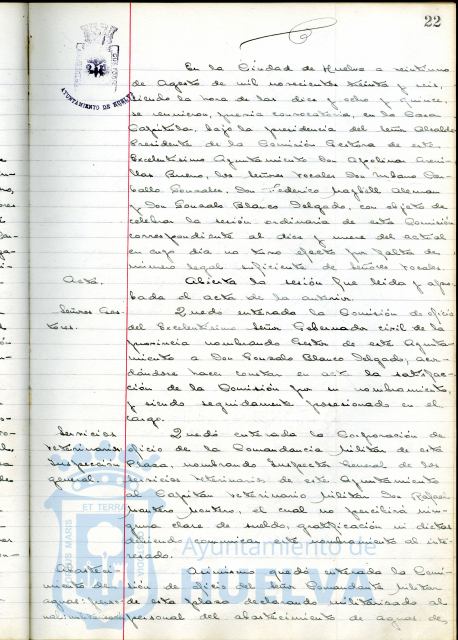 22
AYUNTAMIENTO DE HUELVA
En la Ciudad de Huelva a veintiuno
de Agosto de mil novecientos treinta y seis,
siendo la hora de las diez y ocho y quince,
se reunieron, previa convocatoria, en la Casa
Capitular, bajo la presidencia del Señor Alcalde
Presidente de la Comisión Gestora de este
Excelentísimo Ayuntamiento Don Apolinar Areni-
llas Bueno, los Señores Vocales Don
Gonzalez, Don Federico Alemán
y Don Gonzalo Blanco Delgado, con objeto de
celebrar la sesión ordinaria de esta Comisión
correspondiente al diez y nueve del actual
en cuyo día no tuvo efecto por falta de
número legal suficiente de señores Vocales.
Acta.
Abierta la sesión fue leida y apro-
bada el acta de la anterior.
Señores Ges-
tores.
Quedó enterada la Comisión de oficio
del Excelentísimo Señor Gobernador civil de la
provincia nombrando Gestor de este Ayunta-
miento a Don Gonzalo Blanco Delgado, acor-
dándose hacer constar en acta la satisfac-
ción de la Comisión por su nombramiento,
y siendo seguidamente posesionado en el
cargo.
Servicios
veterinarios
Inspección
general.
Quedó enterada la Corporación de
oficio de la Comandancia Militar de esta
Plaza, nombrando Inspector General de los
servicios Veterinarios de este Ayuntamiento
al Capitan Veterinario Militar Don Rafael
Montero Montero, el cual no percibirá nin-
guna clase de sueldo, gratificación ni dietas
debiendo comunicar este nombramiento al inte-
resado.
Abasteci-
miento de
aguas:
Asimismo quedó enterada la Comi-
sión de oficio del Señor Comandante Militar
de esta plaza declarando militarizado al
personal del abastecimiento de aguas de
ET TERRA
PORTUS MARIS
Ayuntamiento de
HUELVA